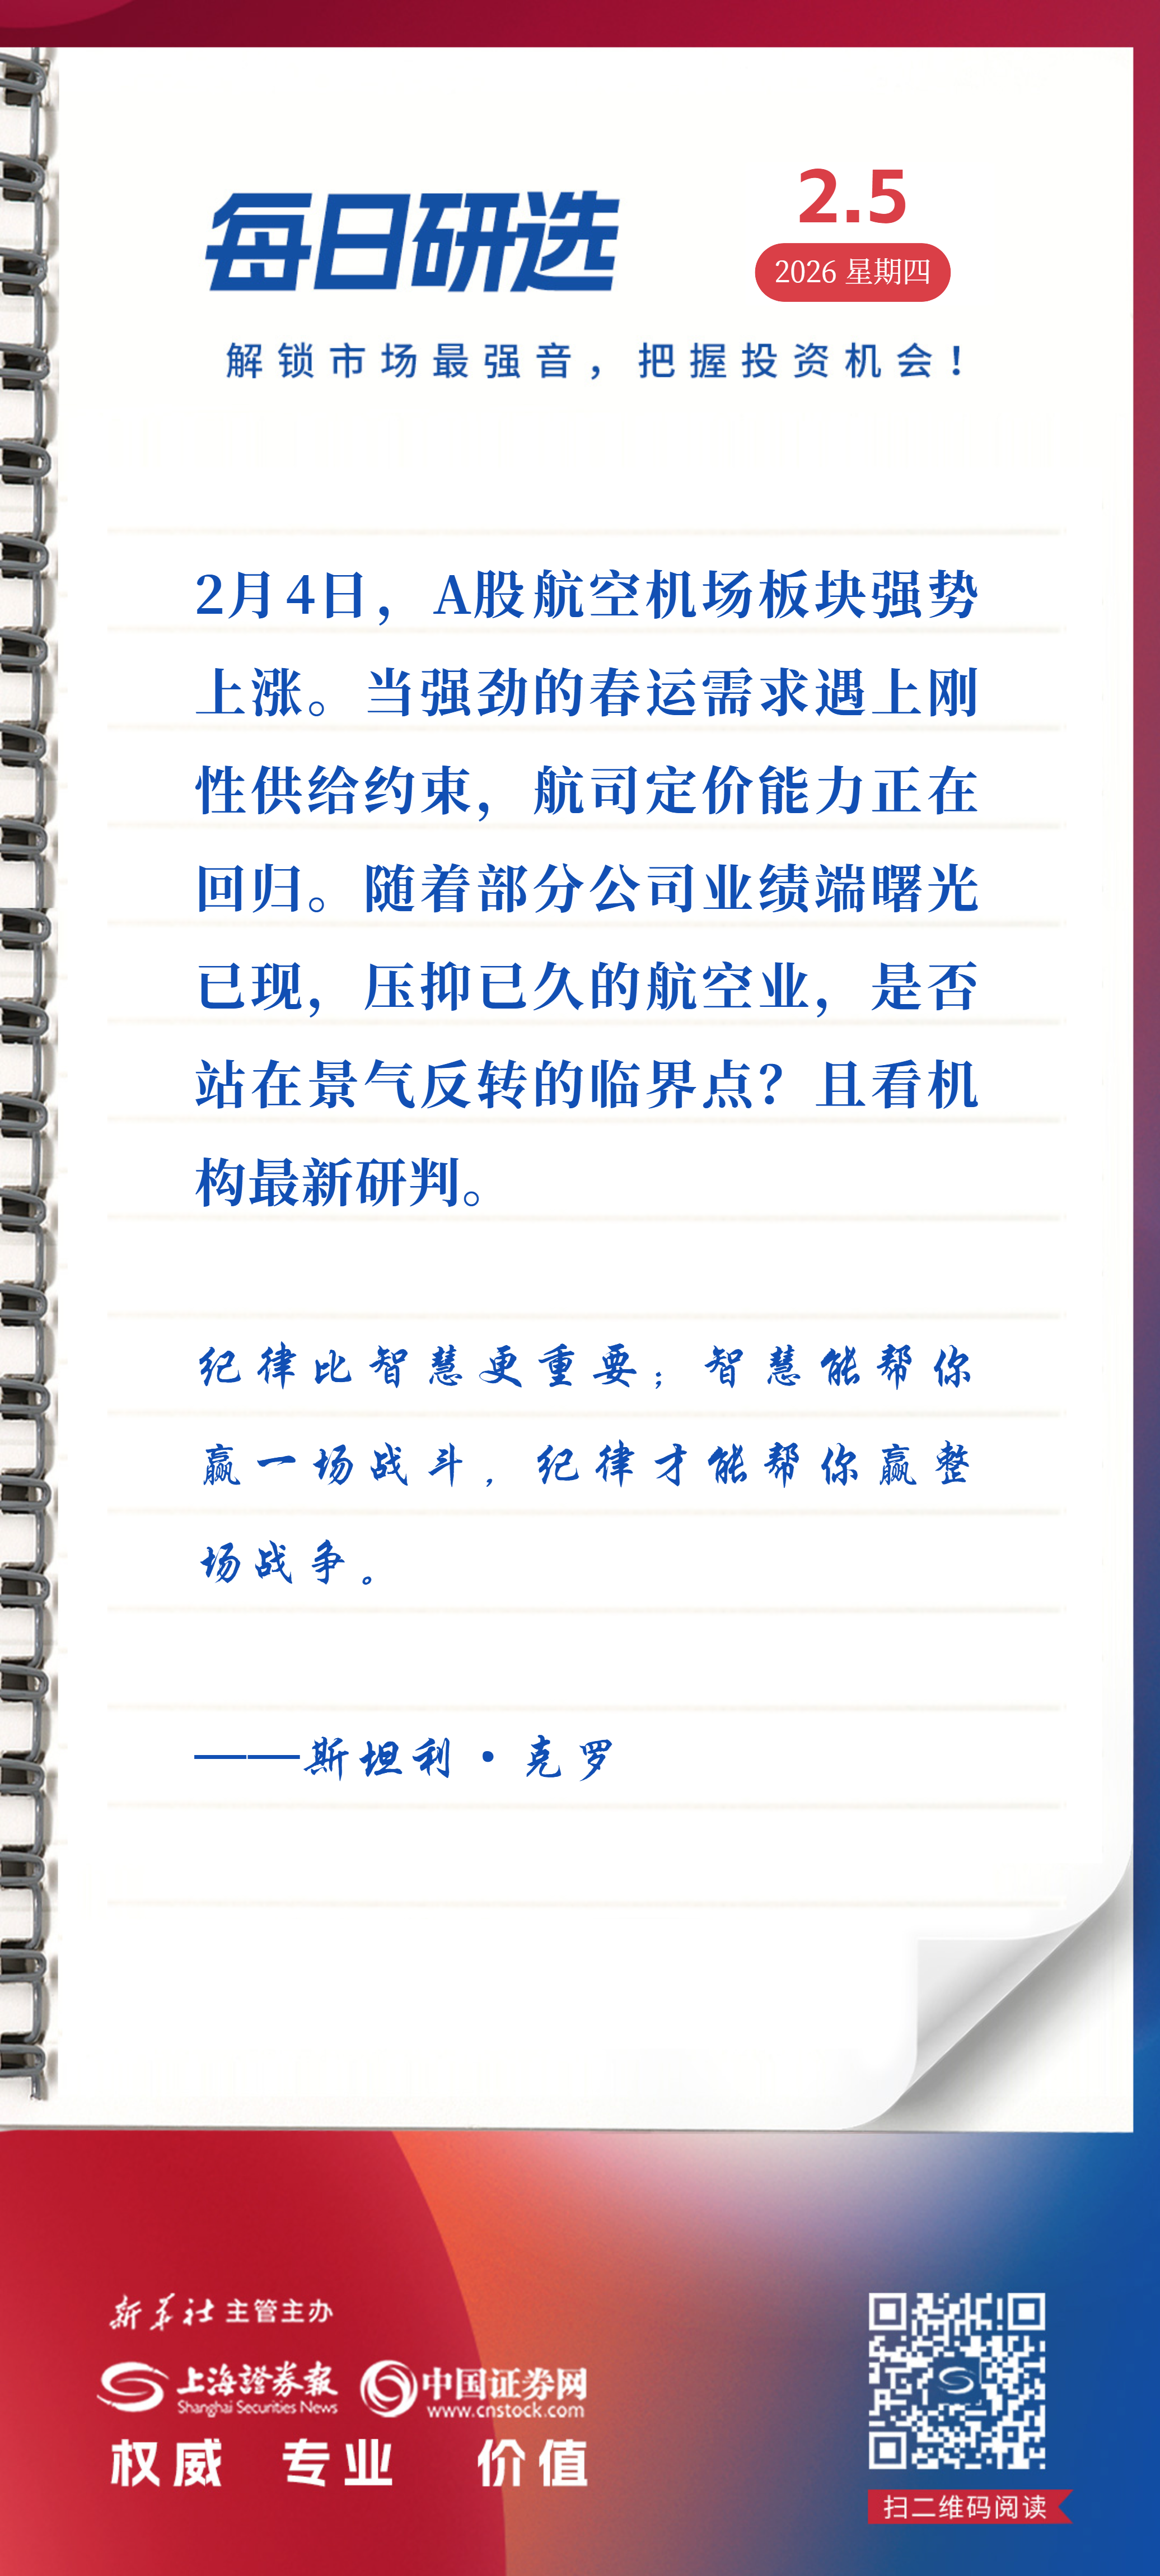 每日研选
2.5
2026 星期四
解锁市场最强音，把握投资机会！
2月4日，A股航空机场板块强势
上涨。当强劲的春运需求遇上刚
性供给约束，航司定价能力正在
回归。随着部分公司业绩端曙光
已现，压抑已久的航空业，是否
站在景气反转的临界点？且看机
构最新研判。
纪律比智慧更重要；智慧能帮你
赢一场战斗，纪律才能帮你赢整
场战争。
——斯坦利·克罗
新华社 主管主办
上海證券報 中国证券网
Shanghai Securities News www.cnstock.com
权威 专业 价值
扫二维码阅读